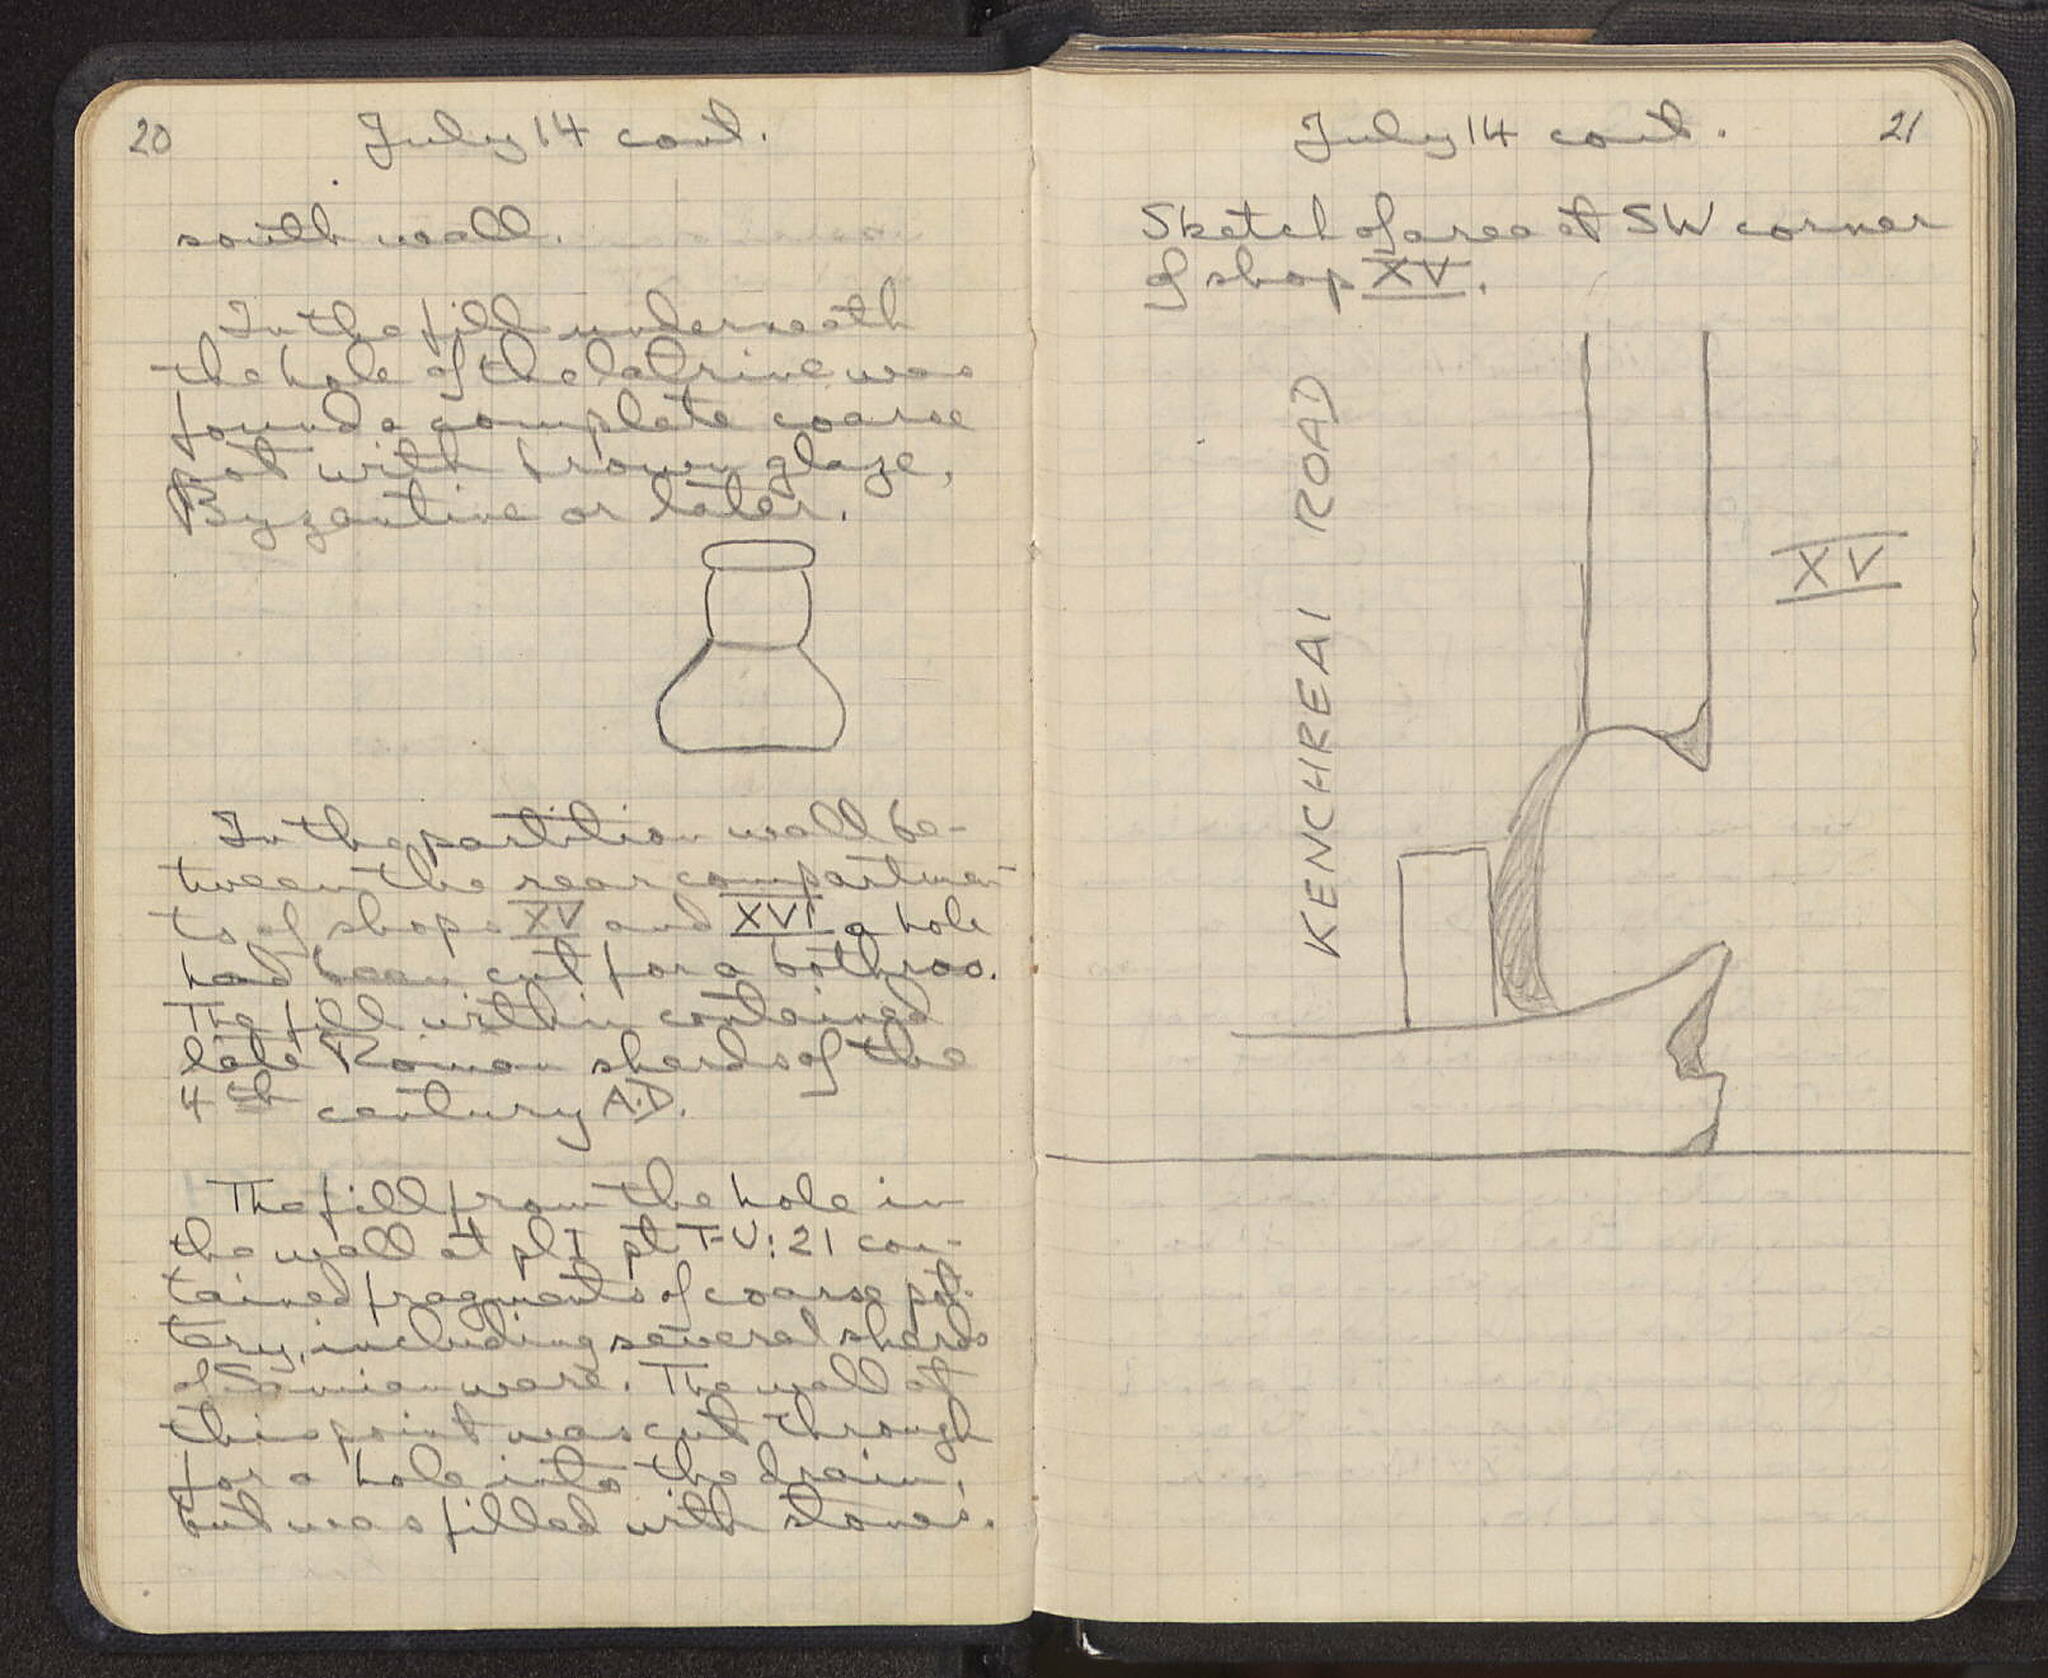 20
July 14 cont.
south wall.
In the fill underneath
the hole of the latrine was
found a complete coarse
pot with brown glaze,
Byzantine or later.
In the partition wall be-
tween the rear compartmen-
ts of shops XV and XVI a hole
had been cut for a bothros.
The fill within contained
late Roman sherds of the
4th century A.D.
The fill from the hole in
the wall at pl I pt T-U:21 con-
tained fragments of coarse pot-
tery, including several sherds
of Samian ware. The wall at
this point was cut through
for a hole into the drain,
but was filled with stones.
July 14 cont.
21
Sketch of area at SW corner
of shop XV.
KENCHREAI ROAD
XV